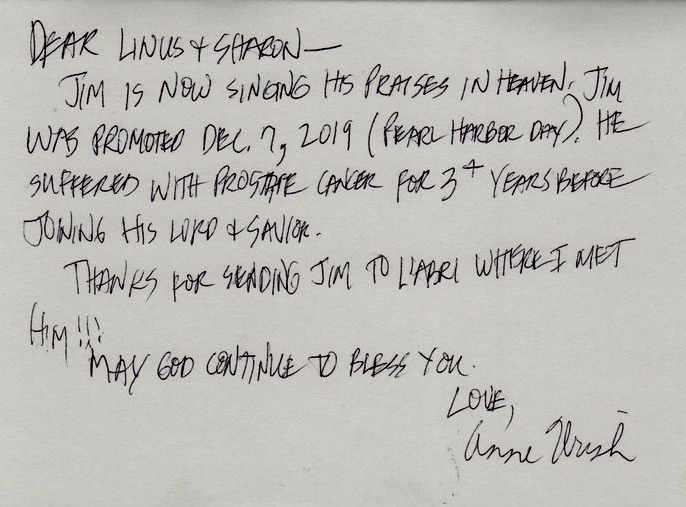 DEAR LINUS & SHARON—
JIM IS NOW SINGING HIS PRAISES IN HEAVEN. JIM
WAS PROMOTED DEC. 7, 2019 (PEARL HARBOR DAY). HE
SUFFERED WITH PROSTATE CANCER FOR 3+ YEARS BEFORE
JOINING HIS LORD & SAVIOR.
THANKS FOR SENDING JIM TO L'ABRI WHERE I MET
HIM!!!
MAY GOD CONTINUE TO BLESS YOU.
LOVE,
Anne